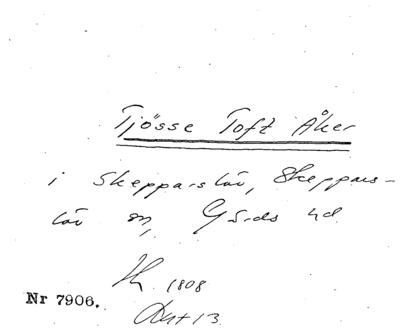 Tjösse Toft Åker
i Skepparslöv, Skeppars-
löv sn, Gärds hd
1808
Nr 7906.
Akt 13